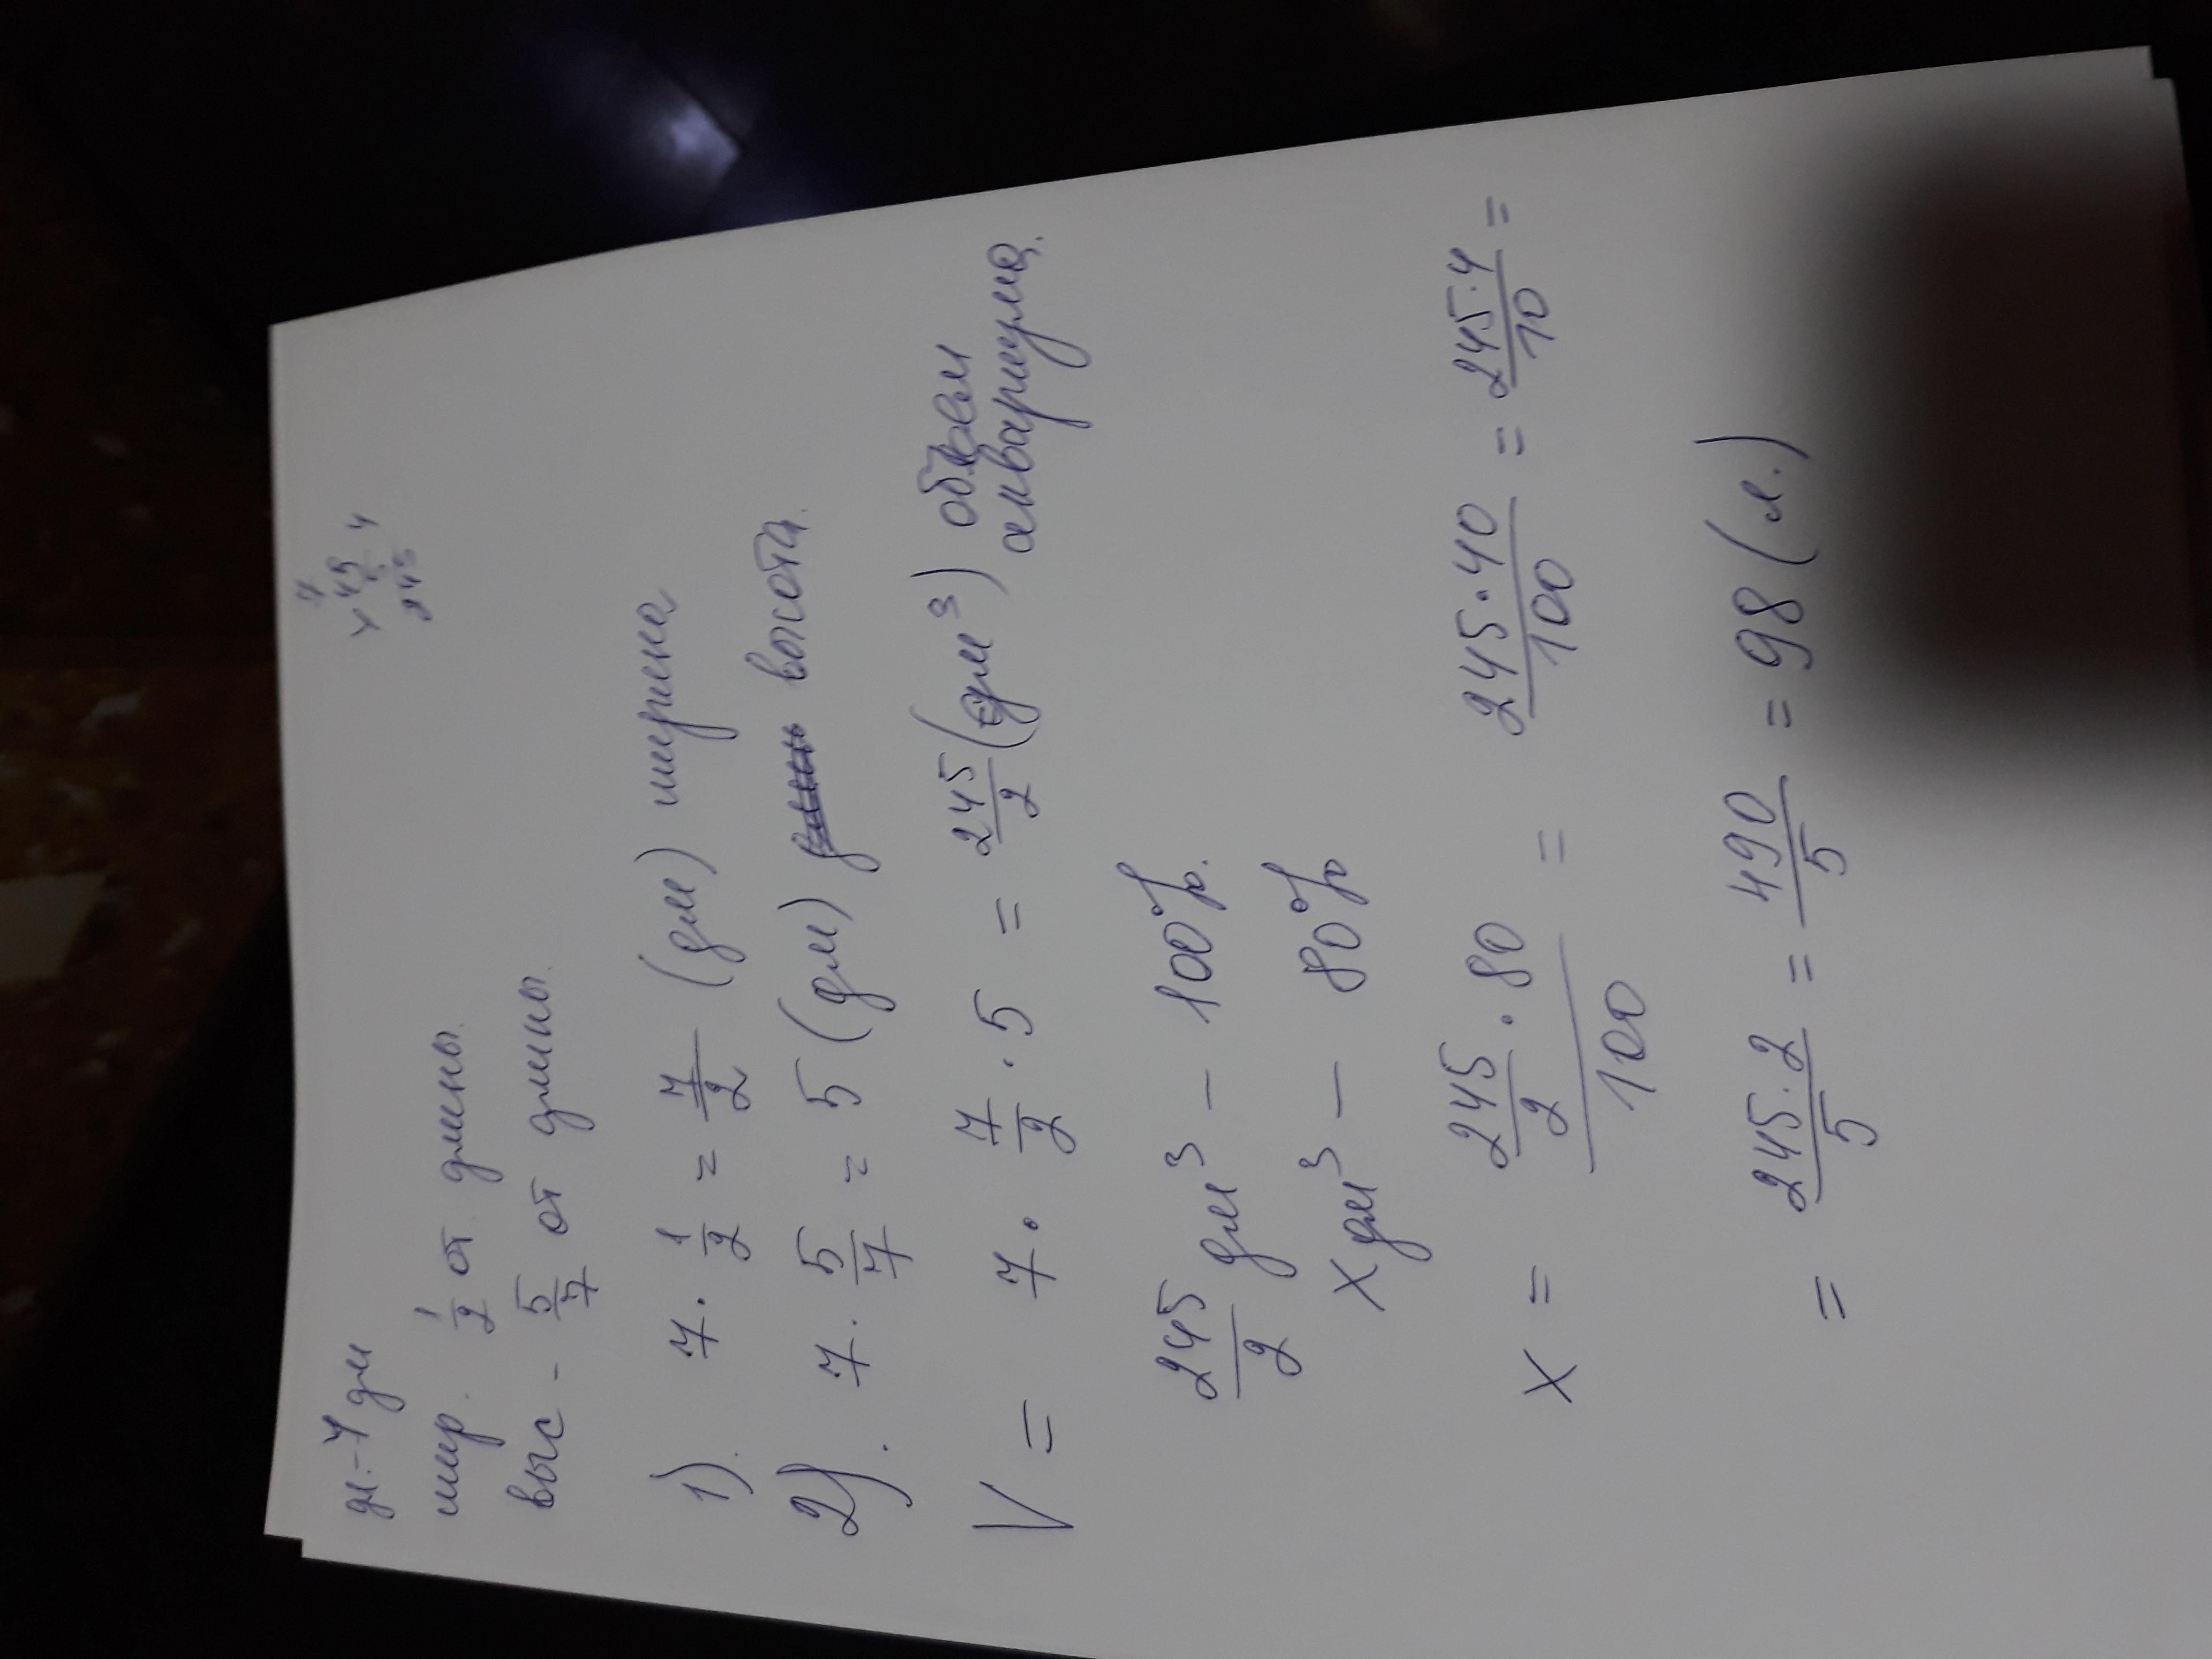 дл. - 7 дм
шир. 1/2 от длины.
выс - 5/7 от длины.
× 49
245
1). 7 · 1/2 = 7/2 (дм) ширина
2). 7 · 5/7 = 5 (дм) высота.
V = 7 · 7/2 · 5 = 245/2 (дм³) объем
аквариума.
245/2 дм³ — 100%.
x дм³ — 80%
x = 245/2 · 80 / 100 = 245 · 40 / 100 = 245 · 4 / 10 =
= 245 · 2 / 5 = 490/5 = 98 (л.)